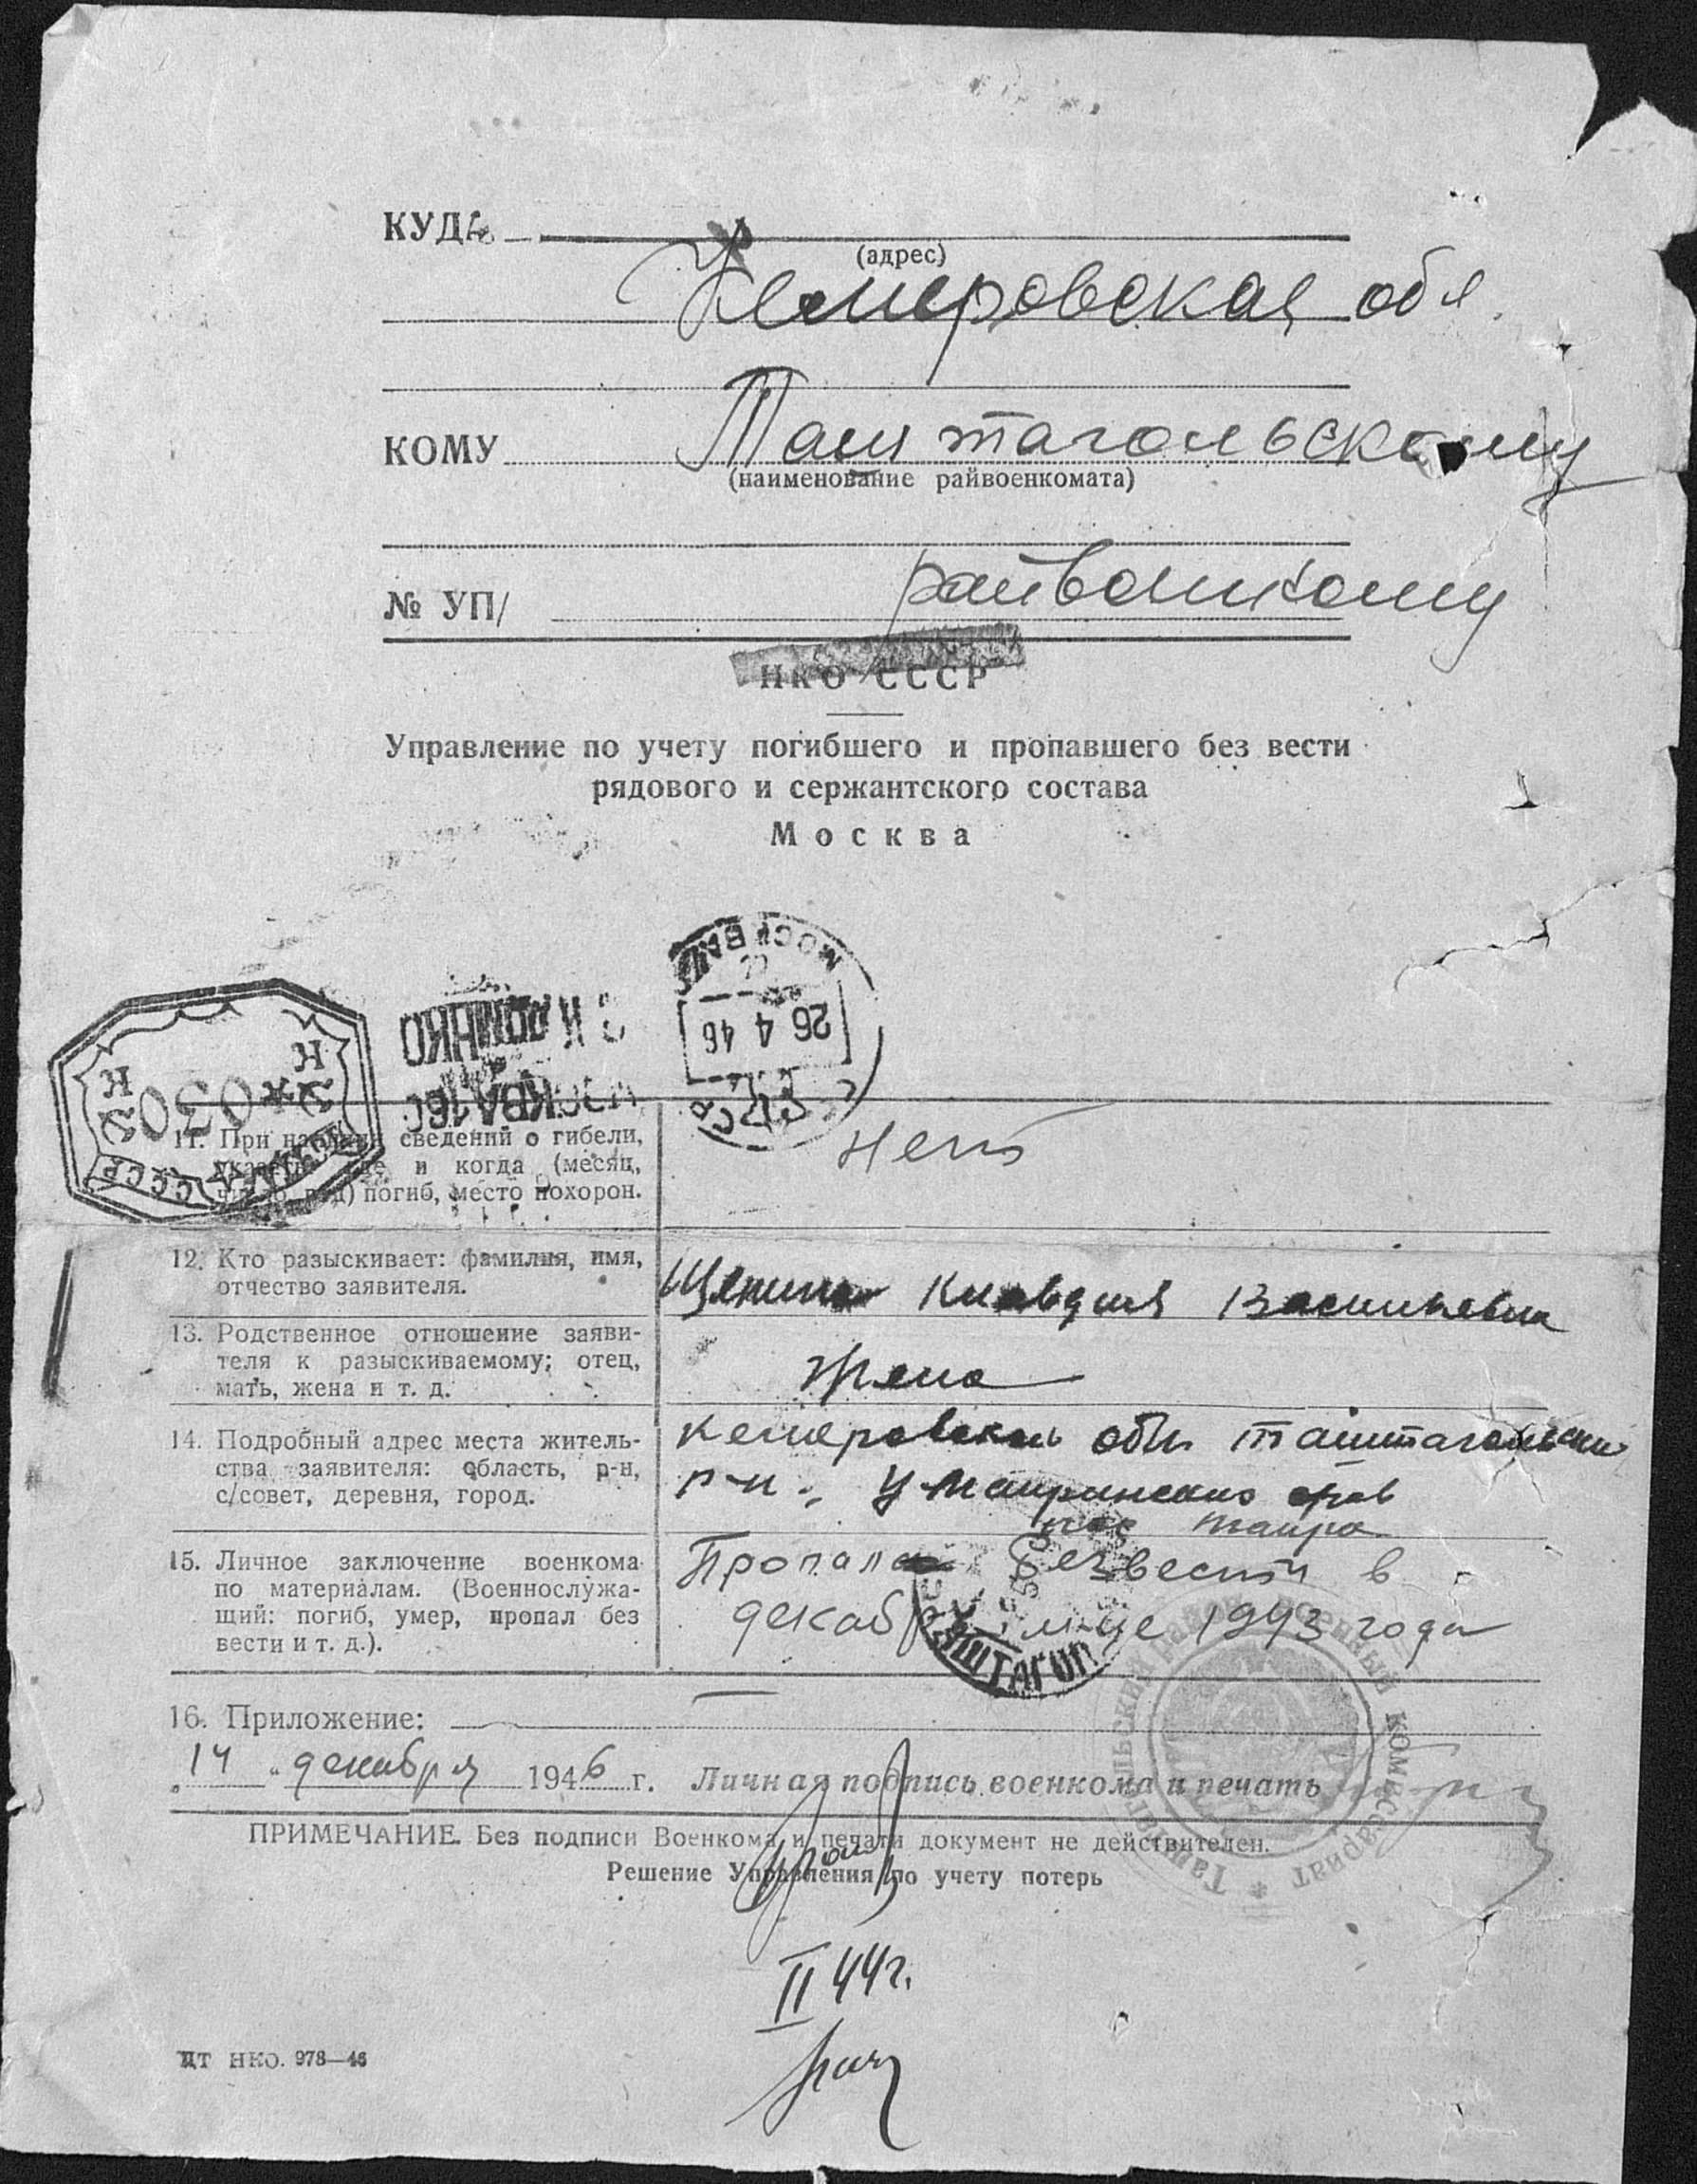 КУДА
(адрес)
Кемеровская обл.
КОМУ Таштагольскому
(наименование райвоенкомата)
райвоенкому
№ УП/
НКО СССР
Управление по учету погибшего и пропавшего без вести
рядового и сержантского состава
Москва
МОСКВА
26 4 46
МОСКВА
030
СССР
11. При наличии сведений о гибели,
указать, где и когда (месяц,
число, год) погиб, место похорон.
нет
12. Кто разыскивает: фамилия, имя,
отчество заявителя.
Клавдия Васильевна
13. Родственное отношение заяви-
теля к разыскиваемому; отец,
мать, жена и т. д.
жена
14. Подробный адрес места житель-
ства заявителя: область, р-н,
с/совет, деревня, город.
Кемеровская обл. Таштагольский
р-н.
15. Личное заключение военкома
по материалам. (Военнослужа-
щий: погиб, умер, пропал без
вести и т. д.).
Пропал безвести в
декабре м-це 1943 года
ТАШТАГОЛ
16. Приложение:
14 декабря 1946 г. Личная подпись военкома и печать
Таштагольский районный военный комиссариат
ПРИМЕЧАНИЕ. Без подписи Военкома и печати документ не действителен.
Решение Управления по учету потерь
II 44 г.
ЦТ НКО. 978—46